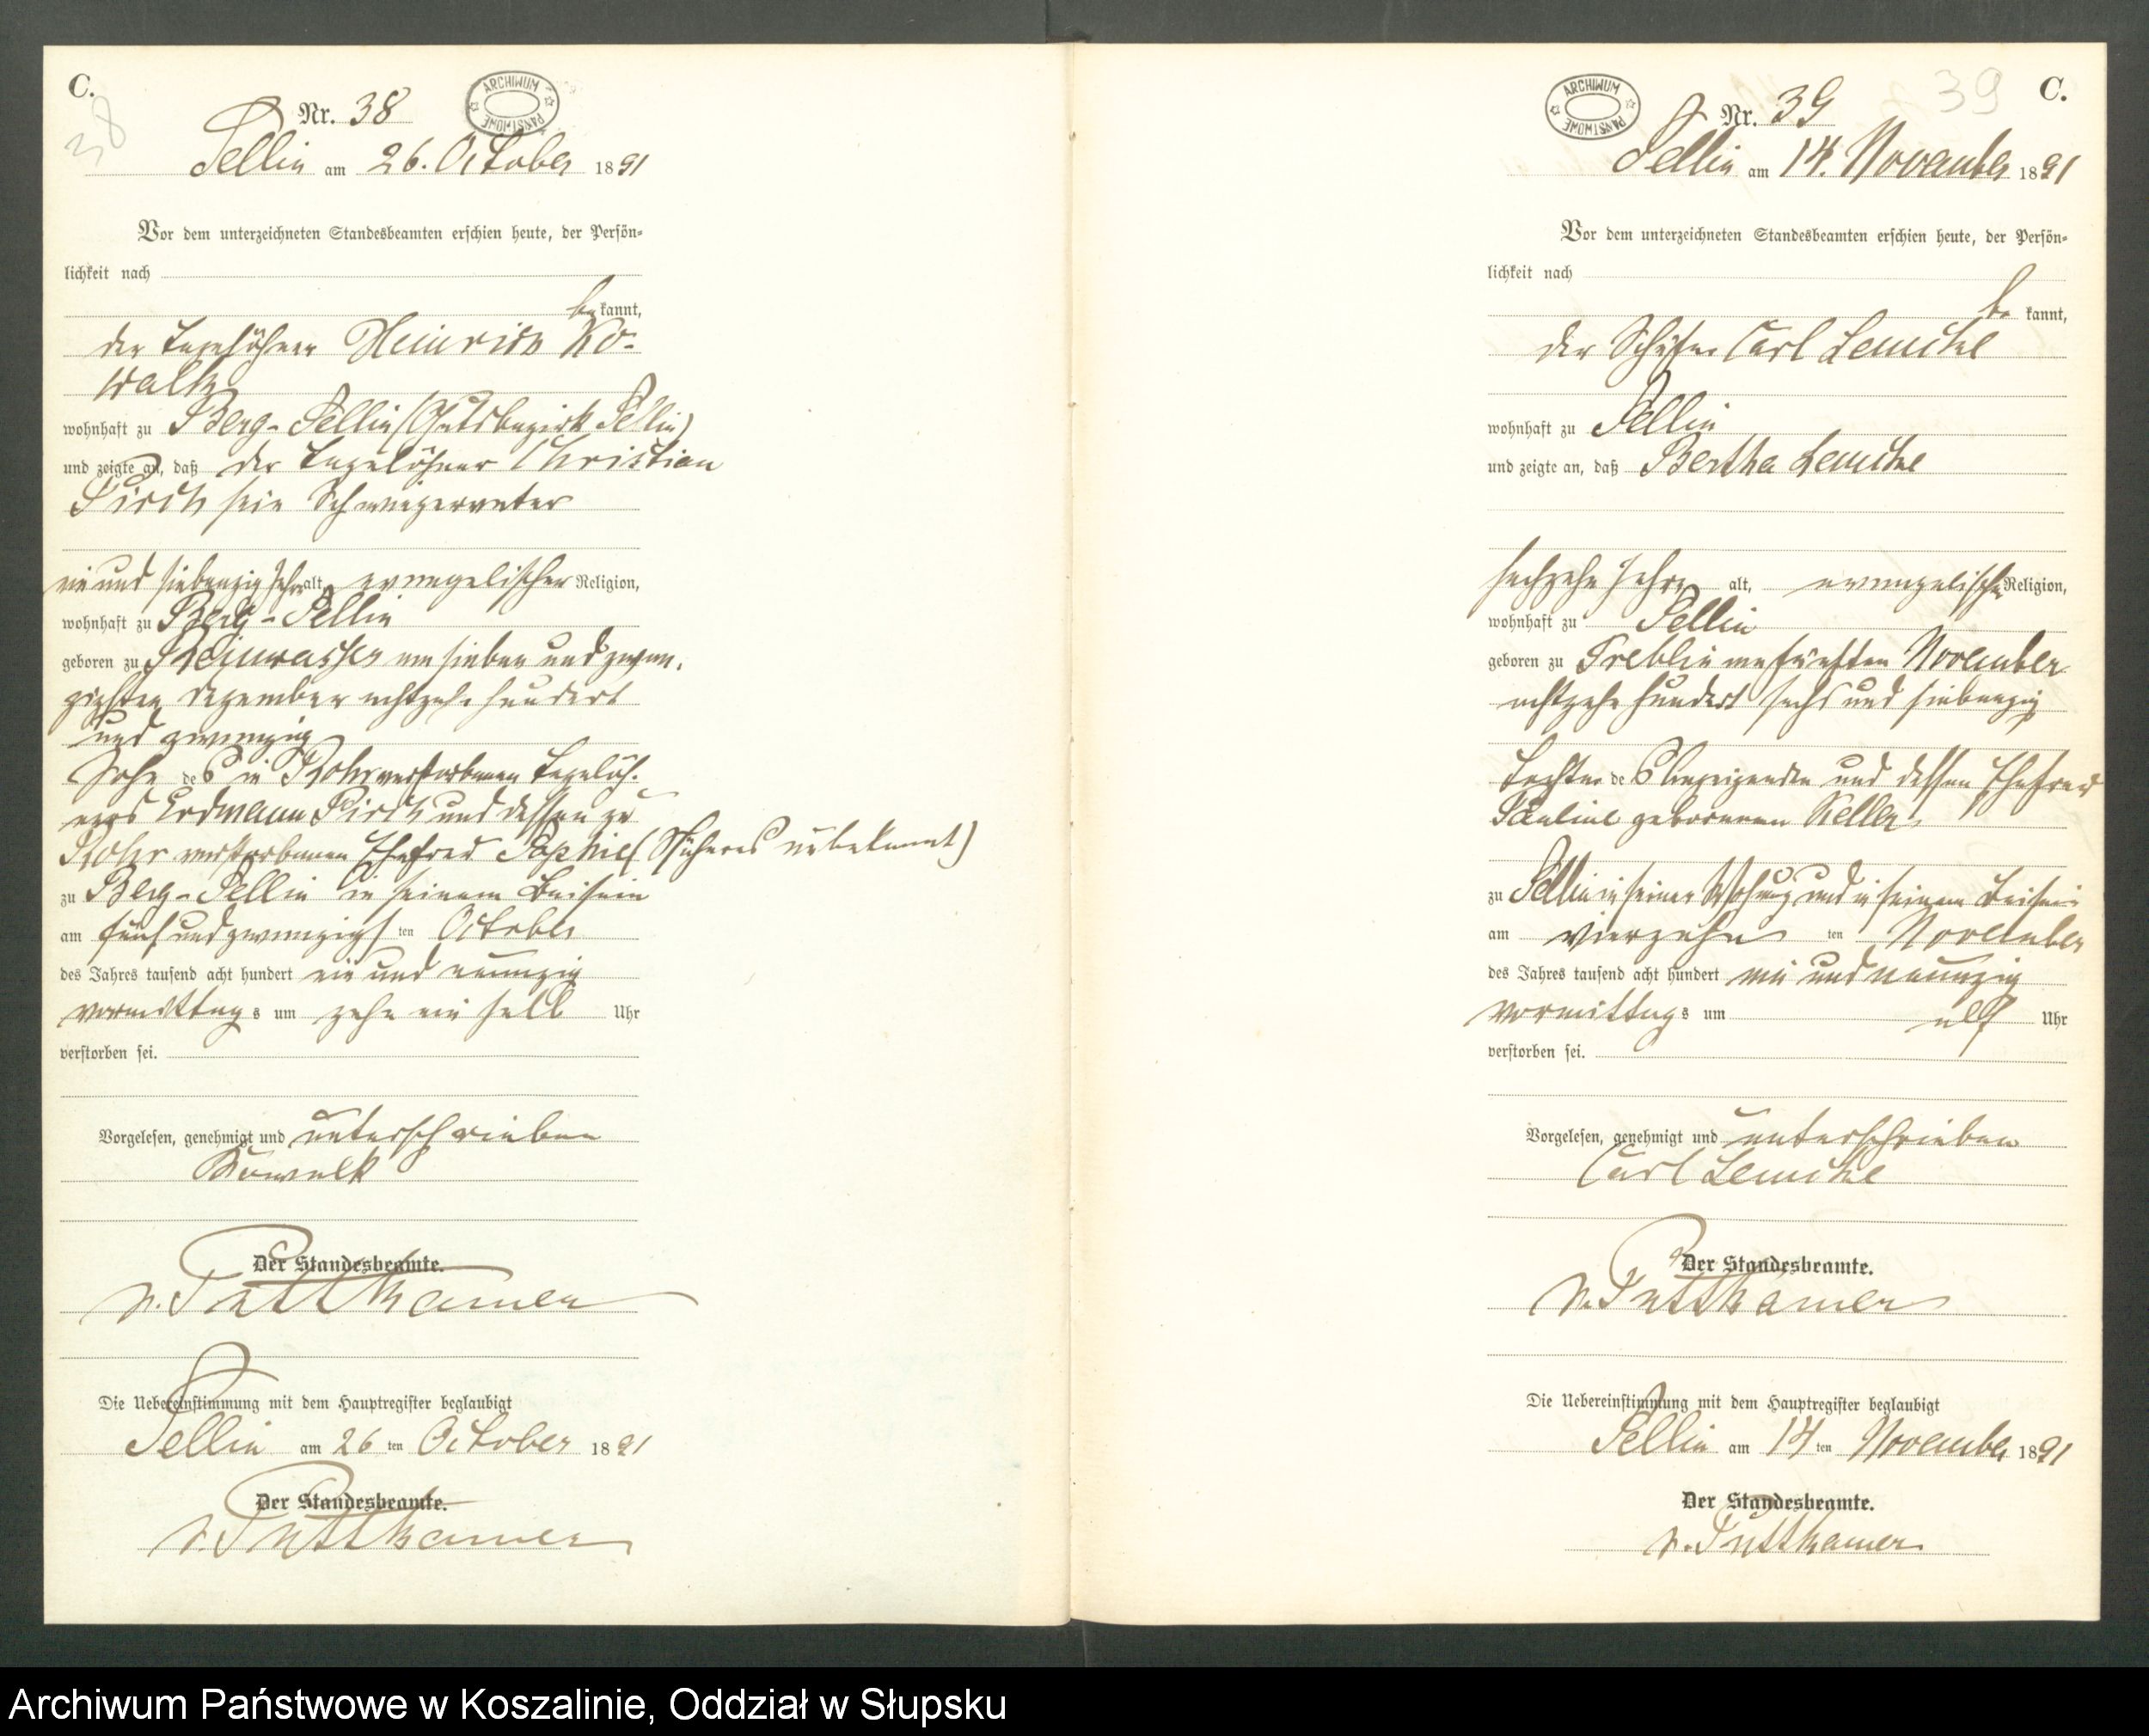 C.
38
Nr. 38
ARCHIWUM PAŃSTWOWE
Sellin am 26. October 1891
Vor dem unterzeichneten Standesbeamten erschien heute, der Persön=
lichkeit nach
be kannt,
der Tagelöhner Heinrich Ko-
walk
wohnhaft zu Berg-Sellin (Gutsbezirk Sellin)
und zeigte an, daß der Tagelöhner Christian
Pirch sein Schwiegervater
ein und siebenzig Jahre alt, evangelischer Religion,
wohnhaft zu Berg-Sellin
geboren zu am sieben und zwan-
zigsten Dezember achtzehn hundert
und zwanzig
Sohn des in Rohr verstorbenen Tagelöh-
ners Erdmann Pirch und dessen zu
Rohr verstorbenen Ehefrau Sophie (Näheres unbekannt)
zu Berg-Sellin in seinem Beisein
am fünf und zwanzigs ten October
des Jahres tausend acht hundert ein und neunzig
vormittags um zehn ein halb Uhr
verstorben sei.
Vorgelesen, genehmigt und unterschrieben
Kowalk
Der Standesbeamte.
v. Puttkamer
Die Uebereinstimmung mit dem Hauptregister beglaubigt
Sellin am 26 ten October 1891
Der Standesbeamte.
v. Puttkamer
39 C.
Nr. 39
ARCHIWUM PAŃSTWOWE
Sellin am 14. November 1891
Vor dem unterzeichneten Standesbeamten erschien heute, der Persön=
lichkeit nach
be kannt,
der Schäfer Carl Lemcke
wohnhaft zu Sellin
und zeigte an, daß Bertha Lemcke
fechzehn Jahre alt, evangelischer Religion,
wohnhaft zu Sellin
geboren zu Treblin am fünften November
achtzehn hundert sechs und siebenzig
Tochter des Anzeigenden und dessen Ehefrau
Pauline geborenen Keller
zu Sellin in seiner Wohnung und in seinem Beisein
am vierzehn ten November
des Jahres tausend acht hundert ein und neunzig
vormittags um elf Uhr
verstorben sei.
Vorgelesen, genehmigt und unterschrieben
Carl Lemcke
Der Standesbeamte.
v. Puttkamer
Die Uebereinstimmung mit dem Hauptregister beglaubigt
Sellin am 14 ten November 1891
Der Standesbeamte.
v. Puttkamer
Archiwum Państwowe w Koszalinie, Oddział w Słupsku